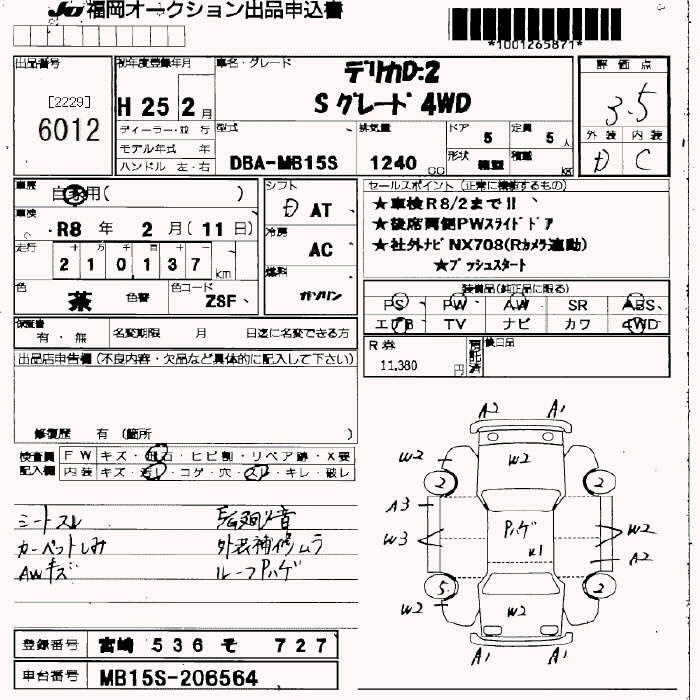 JU 福岡オークション出品申込書
*1001265871*
出品番号
[2229]
6012
初年度登録年月
H 25 2 月
ディーラー・並 行
モデル年式 年
ハンドル 左・右
車名・グレード
デリカD:2
S グレード 4WD
型式
DBA-MB15S
排気量
1240 cc
ドア
5
定員
5 人
形状
箱型
積載
kg
評価点
3.5
外装 内装
D C
車歴
自家用( )
車検
R8 年 2 月 (11 日)
走行
十万 万 千 百 十 一
2 1 0 1 3 7 km
色
茶
色替
色コード
ZSF
シフト
D AT
冷房
AC
燃料
ガソリン
セールスポイント (正常に機能するもの)
★車検R8/2まで!!
★後席両側PWスライドドア
★社外ナビNX708(Rカメラ連動)
★プッシュスタート
装備品(純正品に限る)
PS PW AW SR ABS
エアB TV ナビ カワ 4WD
保証書
有・無
名変期限 月 日迄に名変できる方
R券
11,380 円
預託済
後日品
出品店申告欄(不良内容・欠品など具体的に記入して下さい)
修復歴 有 (箇所 )
検査員
記入欄
FW キズ・飛石・ヒビ割・リペア跡・X要
内装 キズ・汚レ・コゲ・穴・スレ・キレ・破レ
シートスレ
カーペットしみ
AWキズ
外装補修ムラ
ルーフPハゲ
A2 A1
W2 W2
2 2
A3
W3 Pハゲ W2
W1 A2
5 2
W2 W2
A1 A1
登録番号 宮崎 536 そ 727
車台番号 MB15S-206564